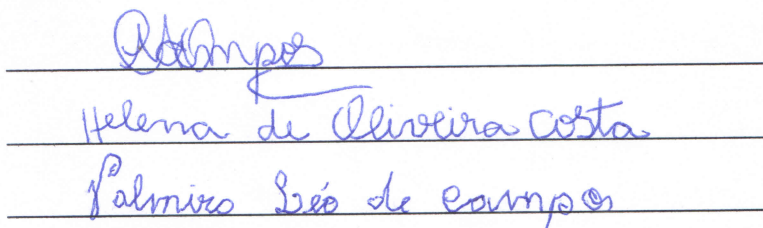 Helena de Oliveira Costa
Palmiro Léo de Campos